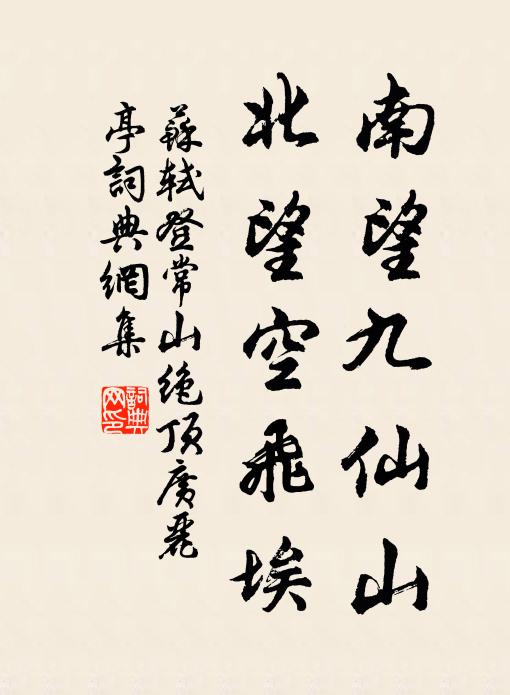 南望九仙山
北望空飛埃
蘇軾登常山絶頂廣麗
亭詞典網集
詞典
网印